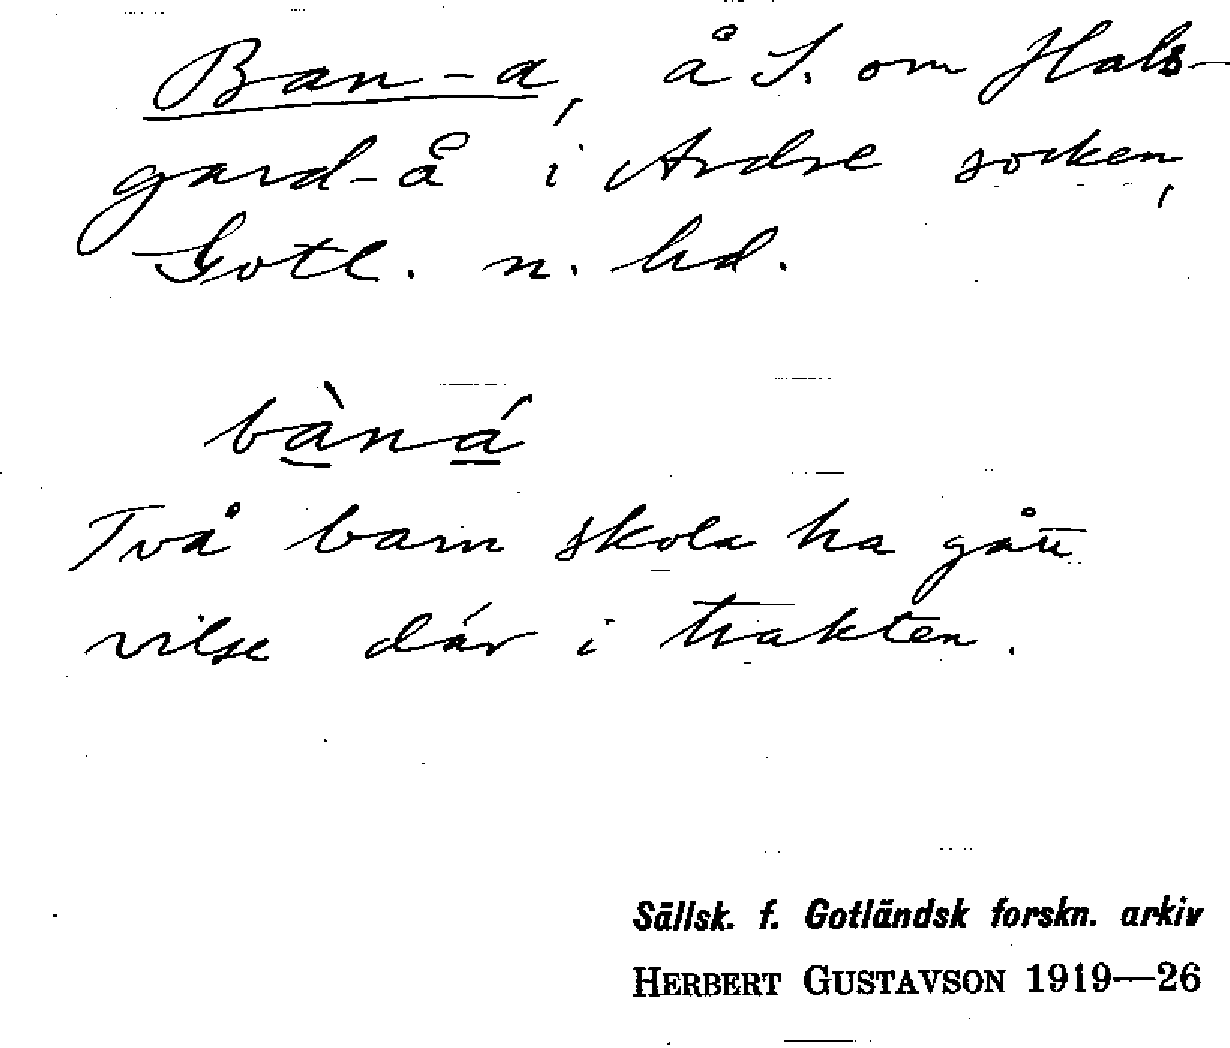 Ban-a, å S. om Hals-
gard-å i Ardre socken,
Gotl. n. hd.
bàná
Två barn skola ha gått
vilse där i trakten.
Sällsk. f. Gotländsk forskn. arkiv
HERBERT GUSTAVSON 1919—26